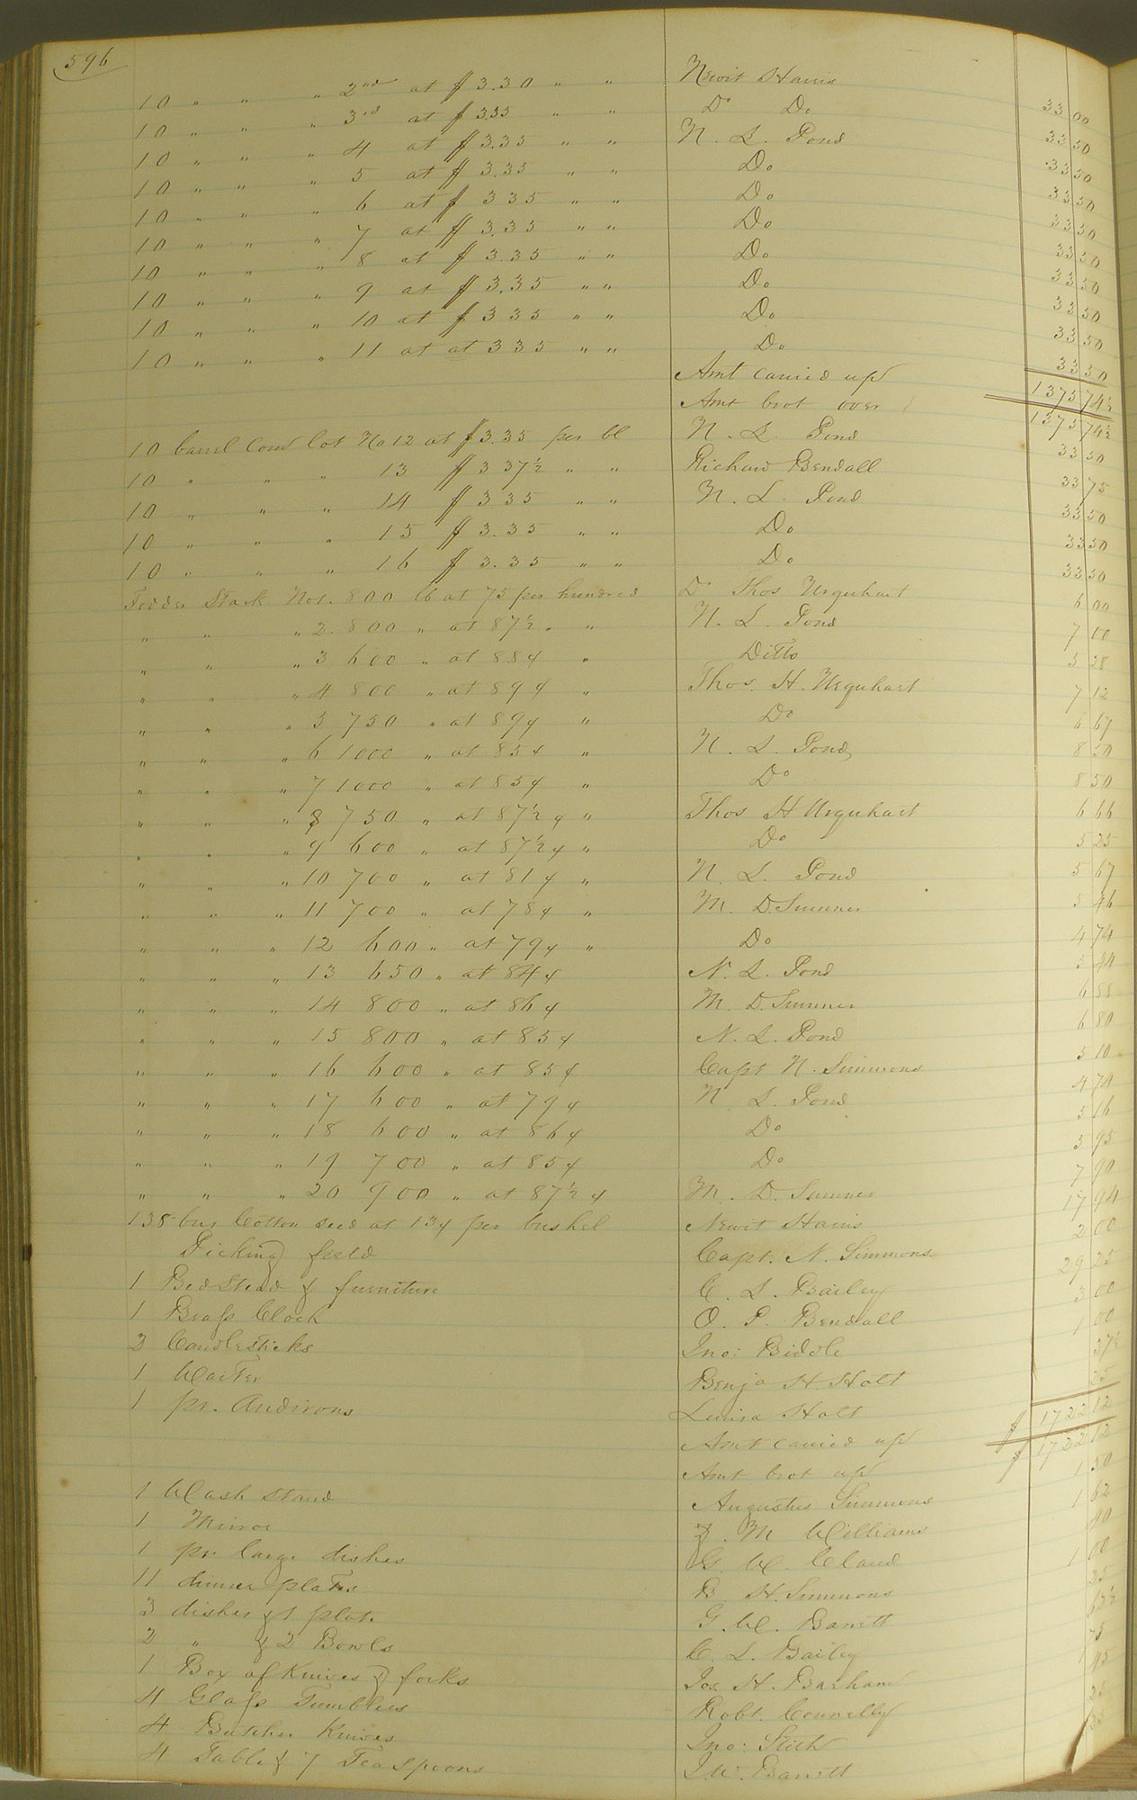 596
10 " " " 2nd at $3.30 " " Newit Harris 33 00
10 " " " 3rd at $3.35 " " Do Do 33 50
10 " " " 4 at $3.35 " " N. L. Pond 33 50
10 " " " 5 at $3.35 " " Do 33 50
10 " " " 6 at $3 35 " " Do 33 50
10 " " " 7 at $3.35 " " Do 33 50
10 " " " 8 at $3 35 " " Do 33 50
10 " " " 9 at $3.35 " " Do 33 50
10 " " " 10 at $3 35 " " Do 33 50
10 " " " 11 at at 3 35 " " Do 33 50
Amt carried up 1375 74½
Amt brot over 1375 74½
10 barrel Corn lot No 12 at $3.35 per bl N. L. Pond 33 50
10 " " " 13 $3 37½ " " Richard Bendall 33 75
10 " " " 14 $3 35 " " N. L. Pond 33 50
10 " " " 15 $3.35 " " Do 33 50
10 " " " 16 $3.35 " " Do 33 50
Fodder Stack No 1. 800 lb at 75 per hundred D Thos Urquhart 6 00
" " " 2. 800 " at 87½ " " N. L. Pond 7 00
" " " 3 600 " at 88¢ " Ditto 5 28
" " " 4 800 " at 89¢ " Thos. H. Urquhart 7 12
" " " 5 750 " at 89¢ " Do 6 67
" " " 6 1000 " at 85¢ " N. L. Pond 8 50
" " " 7 1000 " at 85¢ " Do 8 50
" " " 8 750 " at 87½¢ " Thos H Urquhart 6 66
" " " 9 600 " at 87½¢ " Do 5 25
" " " 10 700 " at 81¢ " N. L. Pond 5 67
" " " 11 700 " at 78¢ " M. D. Sumner 5 46
" " " 12 600 " at 79¢ " Do 4 74
" " " 13 650 " at 84¢ N. L. Pond 5 44
" " " 14 800 " at 86¢ M. D. Sumner 6 88
" " " 15 800 " at 85¢ N. L. Pond 6 80
" " " 16 600 " at 85¢ Capt N. Simmons 5 10
" " " 17 600 " at 79¢ N L. Pond 4 74
" " " 18 600 " at 86¢ Do 5 16
" " " 19 700 " at 85¢ Do 5 95
" " " 20 900 " at 87½¢ M. D. Sumner 7 90
138 bus Cotton seed at 13¢ per bushel Newit Harris 17 94
Picking field Capt. N. Simmons 2 00
1 Bedstead & furniture C. L. Bailey 29 25
1 Brass Clock O. P. Bendall 3 00
3 Candlesticks Jno: Biddle 1 00
1 Waiter Benja H Holt 37½
1 pr. Andirons Louisa Holt 25
Amt carried up $1722 12
Amt brot up $1722 12
1 Wash Stand Augustus Simmons 1 50
1 Mirror J. M Williams 1 62
1 pr large dishes G W. Claud 40
11 dinner plates B H. Simmons 1 00
3 dishes & 1 plate G. W. Barrett 25
2 " & 2 Bowls C. L. Bailey 62½
1 Box of Knives & forks Jos. H. Barham 75
4 Glass Tumblers Robt. Connelly 45
4 Butcher Knives Jno: Stith 25
4 Table & 7 Teaspoons J. W. Barrett